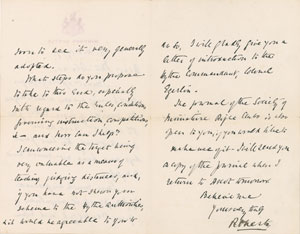 soon to see it very generally
adopted.
What steps do you propose
to take to this end, especially
with regard to the rules, conditions,
promising instruction, competitions,
& - and how can I help?
being
very valuable as a means of
teaching judging distances, and,
if you have not shown your
scheme to the Hythe authorities,
& it would be agreeable to you to
do so, I will gladly give you a
letter of introduction to the
Hythe Commandant, Colonel
Egerton.
The journal of the Society of
Miniature Rifle Clubs is also
open to you, if you would like to
make use of it. I will send you
a copy of the journal when I
return to Ascot tomorrow
Believe me
Yours very truly
Roberts